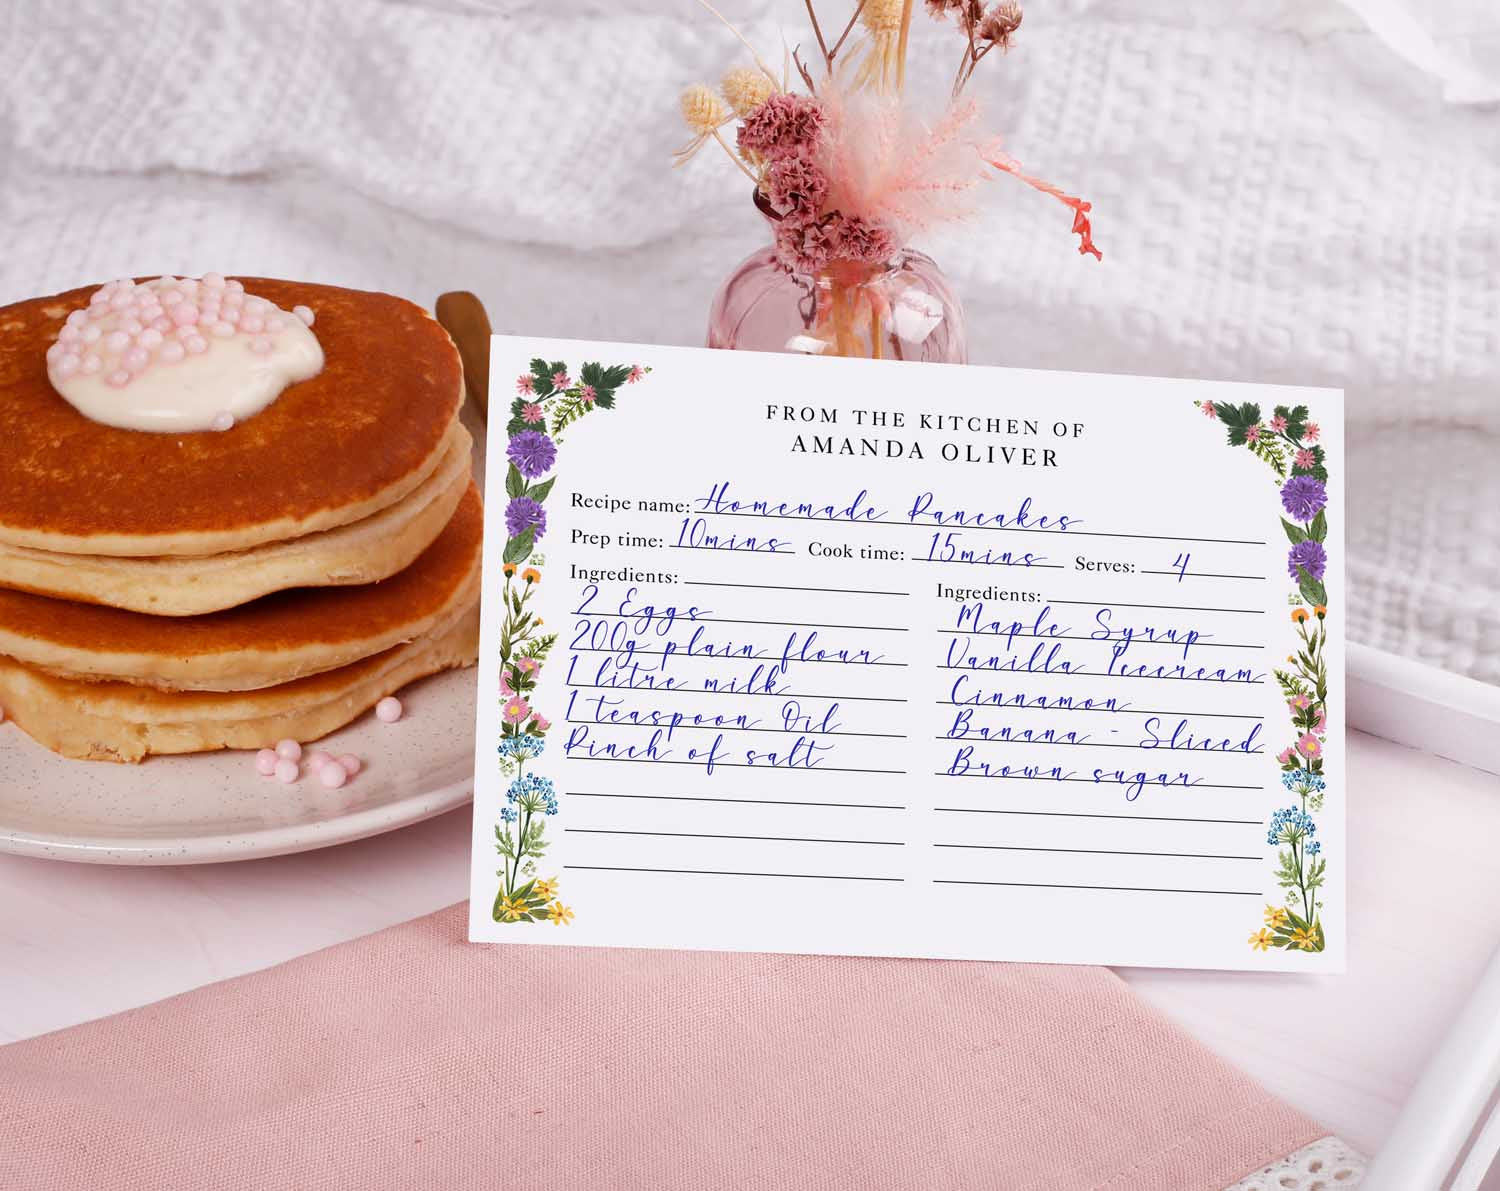 FROM THE KITCHEN OF
AMANDA OLIVER
Recipe name: Homemade Pancakes
Prep time: 10mins Cook time: 15mins Serves: 4
Ingredients:
2 Eggs
200g plain flour
1 litre milk
1 teaspoon Oil
Pinch of salt
Ingredients:
Maple Syrup
Vanilla Icecream
Cinnamon
Banana - Sliced
Brown sugar